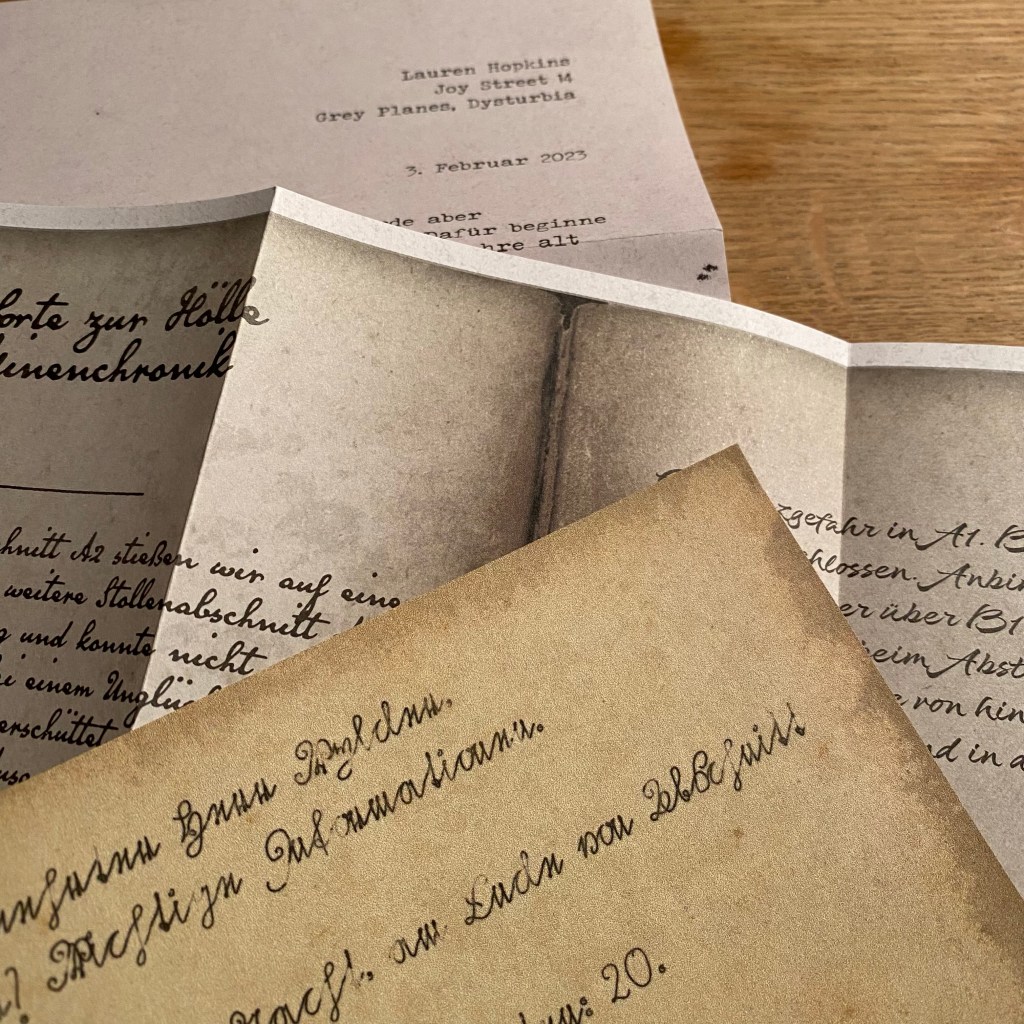 Lauren Hopkins
Joy Street 14
Grey Planes, Dysturbia
3. Februar 2023
de aber
Dafür beginne
hre alt
forte zur Hölle
inenchronik
hnitt A2 stießen wir auf eine
weitere Stollenabschnitt
g und konnte nicht
i einem Unglüc
erschüttet
zgefahr in A1. B
hlossen. Anbin
er über B1
beim Abst
e von hin
nd in d
Herr Wylden.
Wichtige Informationen.
Nacht, am Ende von Abschnitt
20.